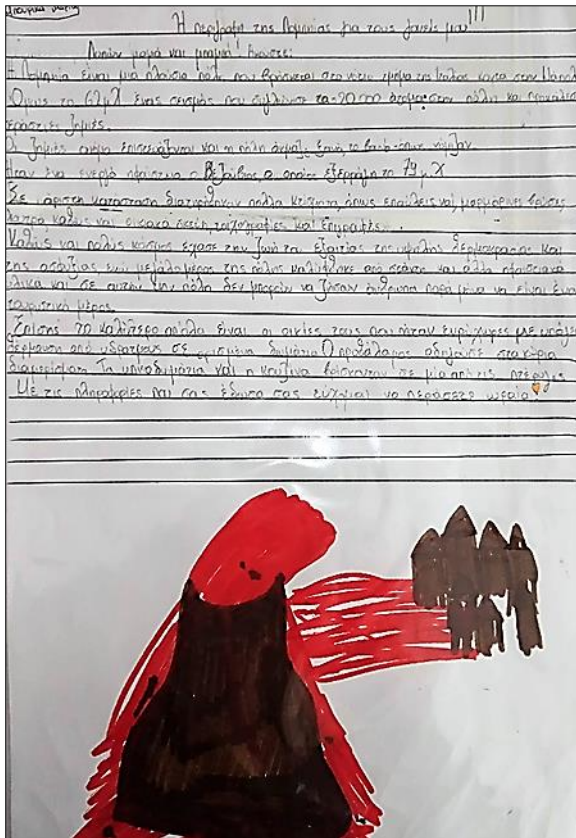 Η περιγραφή της Πομπηίας για τους γονείς μου!!!
Λοιπόν μαμά και μπαμπά! Ακούστε:
Η Πομπηία είναι μια πλούσια πόλη που βρίσκεται στο νότιο τμήμα της Ιταλίας κοντά στην Νάπολι
Όμως το 62 μ.Χ ένας σεισμός που συγκλόνισε τα 20.000 άτομα στην πόλη και προκάλεσε
τεράστιες ζημιές.
Οι ζημιές ακόμα επισκευάζονται και η πόλη άκμαζε ξανά, το βουνό όπως νόμιζαν
ήταν ένα ενεργό ηφαίστειο ο Βεζούβιος ο οποίος εξερράγη το 79 μ.Χ
Σε άριστη κατάσταση διατηρήθηκαν πολλά κτίσματα, όπως επαύλεις, ναοί, μαρμάρινες βρύσες,
λουτρά καθώς και οικιακά σκεύη, τοιχογραφίες και επιγραφές.
Καθώς και πολύς κόσμος έχασε την ζωή του εξαιτίας της υψηλής θερμοκρασίας και
της ασφυξίας, ενώ μεγάλο μέρος της πόλης καλύφθηκε από στάχτη και άλλα ηφαιστειακά
υλικά και σε αυτήν την πόλη δεν μπορούν να ζήσουν άνθρωποι παρά μόνο να είναι ένα
τουριστικό μέρος.
Επίσης το καλύτερο πάνω είναι οι οικίες τους που ήταν ευρύχωρες με υπόγεια
θέρμανση από υδρατμούς σε ορισμένα δωμάτια. Ο προθάλαμος οδηγούσε στα κύρια
διαμερίσματα. Τα υπνοδωμάτια και η κουζίνα βρίσκονταν σε μια από τις πτέρυγες
Με τις πληροφορίες που σας έδωσα σας εύχομαι να περάσετε ωραία